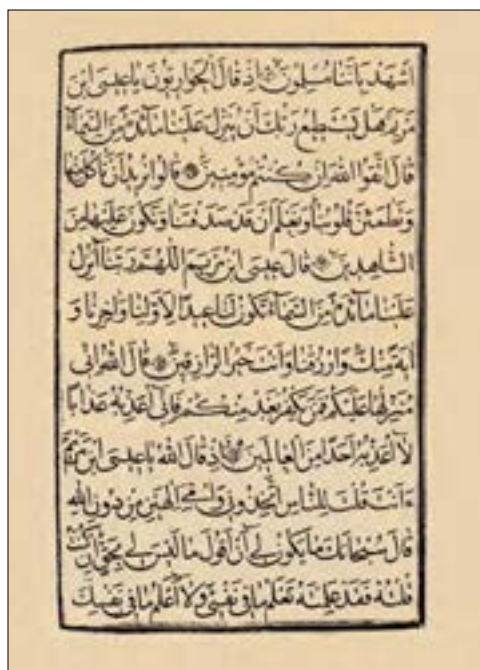 اشهد باننا مسلمون اذ قال الحواريون يا عيسى ابن
مريم هل يستطيع ربك ان ينزل علينا مائدة من السماء
قال اتقوا الله ان كنتم مؤمنين قالوا نريد ان ناكل منها
وتطمئن قلوبنا ونعلم ان قد صدقتنا ونكون عليها من
الشاهدين قال عيسى ابن مريم اللهم ربنا انزل
علينا مائدة من السماء تكون لنا عيدا لاولنا واخرنا و
اية منك وارزقنا وانت خير الرازقين قال الله اني
منزلها عليكم فمن يكفر بعد منكم فاني اعذبه عذابا
لا اعذبه احدا من العالمين اذ قال الله يا عيسى ابن مريم
ءانت قلت للناس اتخذوني وامي الهين من دون الله
قال سبحانك ما يكون لي ان اقول ما ليس لي بحق ان كنت
قلته فقد علمته تعلم ما في نفسي ولا اعلم ما في نفسك